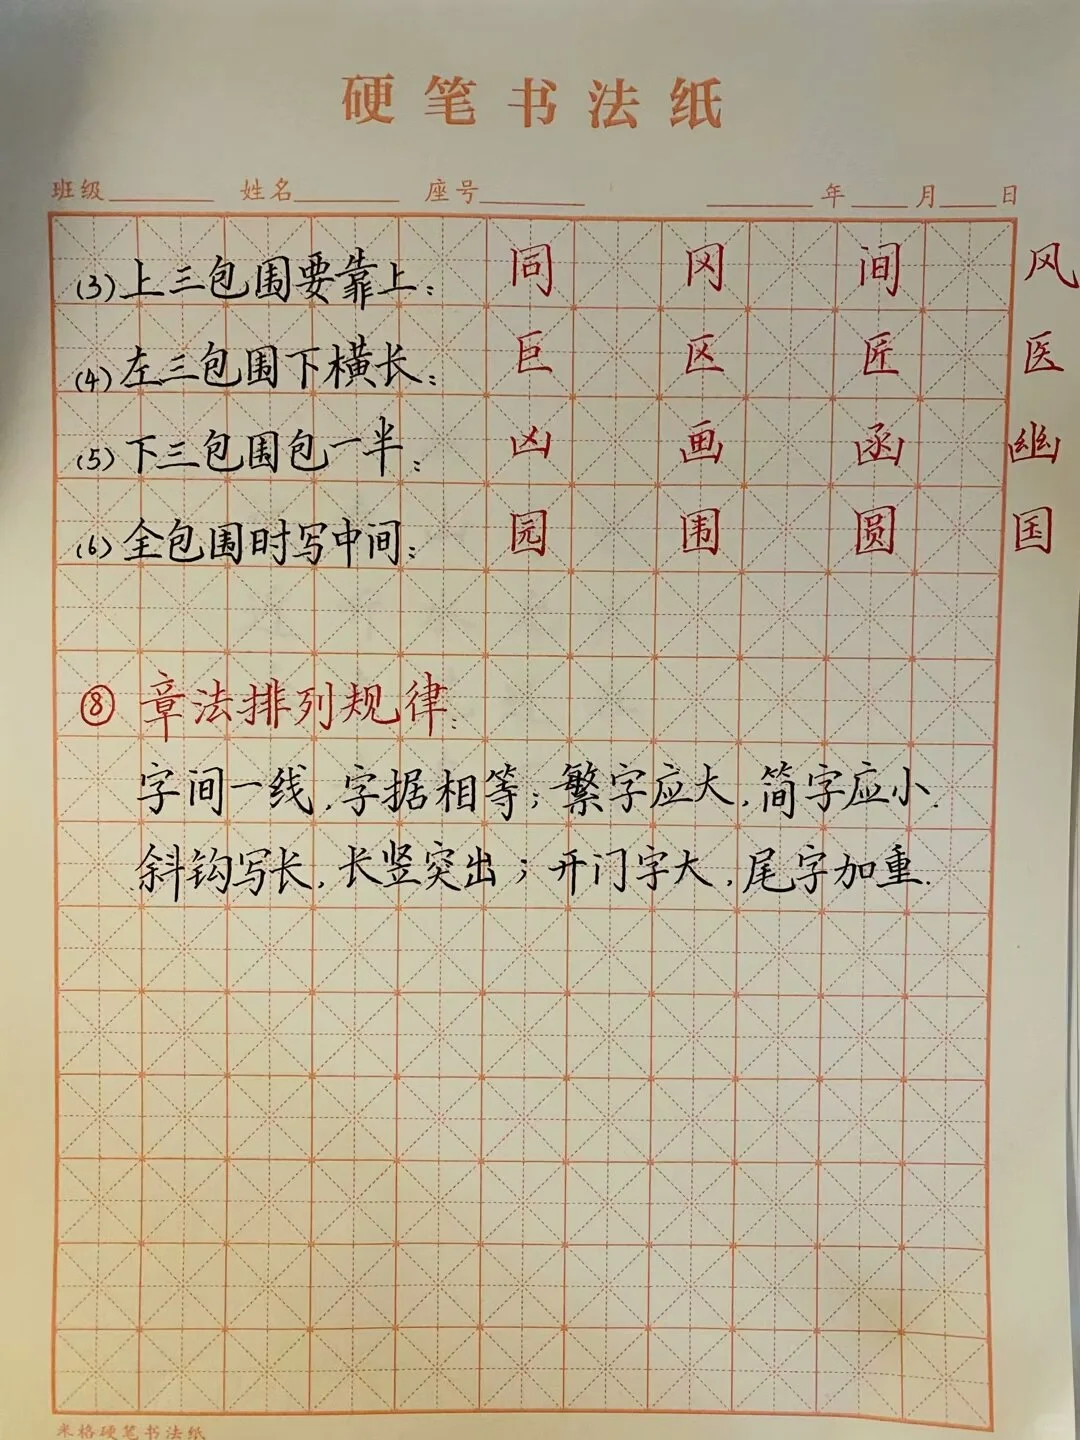 硬笔书法纸
班级 姓名 座号 年 月 日
(3)上三包围要靠上: 同 冈 间 风
(4)左三包围下横长: 巨 区 匠 医
(5)下三包围包一半: 凶 画 函 幽
(6)全包围时写中间: 园 围 圆 国
⑧ 章法排列规律:
字间一线,字据相等;繁字应大,简字应小.
斜钩写长,长竖突出;开门字大,尾字加重.
米格硬笔书法纸